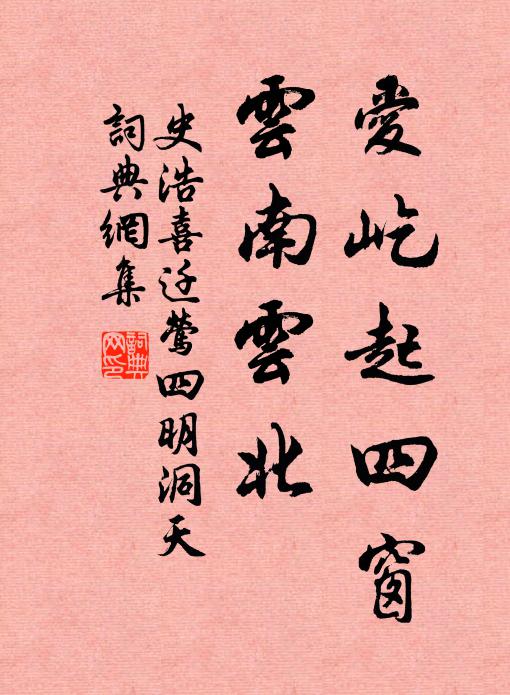 愛屹起四窗
雲南雲北
史浩喜迁鶯四明洞天
詞典網集
詞典網印